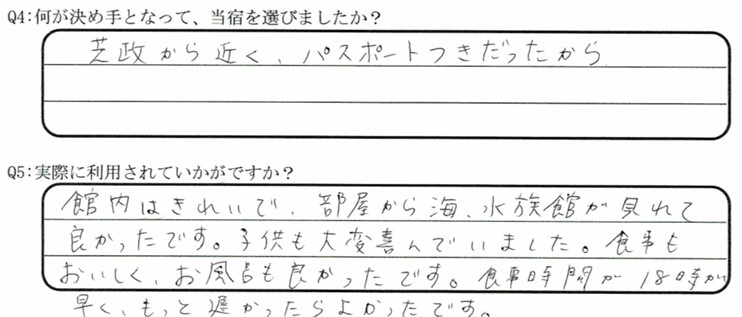 Q4:何が決め手となって、当宿を選びましたか？
芝政から近く、パスポートつきだったから
Q5:実際に利用されていかがですか？
館内はきれいで、部屋から海、水族館が見れて
良かったです。子供も大変喜んでいました。食事も
おいしく、お風呂も良かったです。食事時間が18時が
早く、もっと遅かったらよかったです。